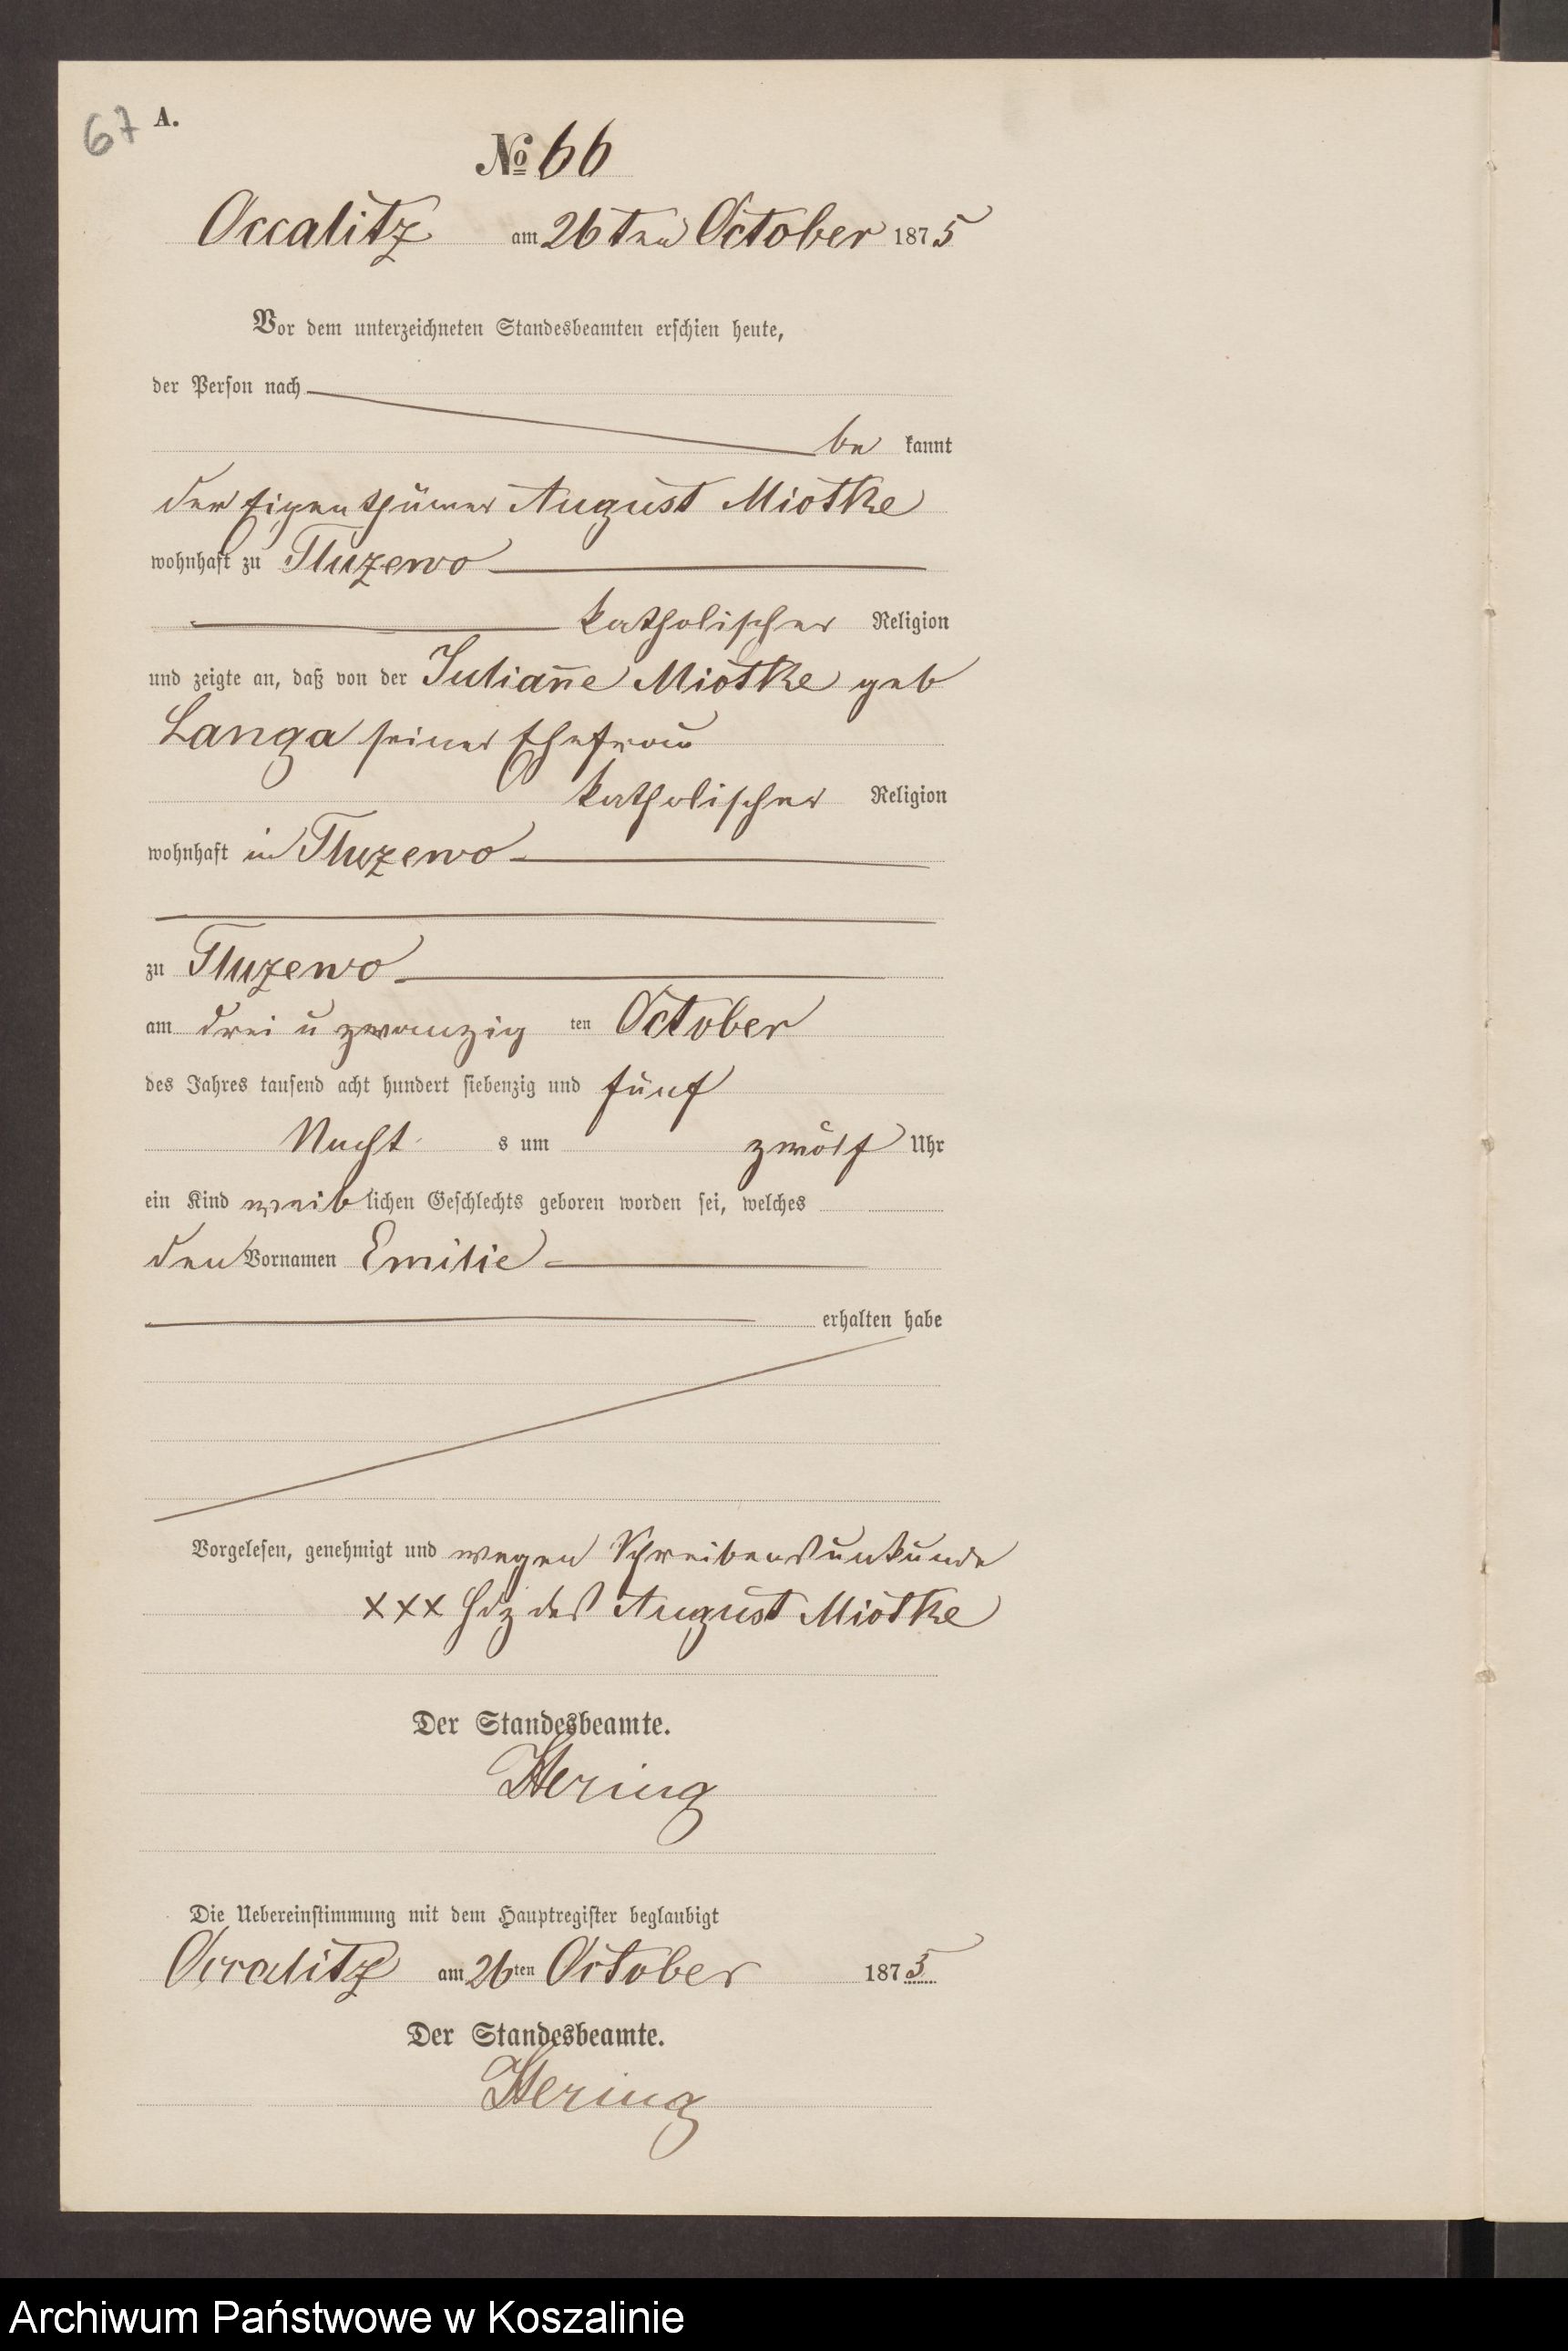 67 A.
№ 66
Occalitz am 26ten October 1875
Vor dem unterzeichneten Standesbeamten erschien heute,
der Person nach
be kannt
der Eigenthümer August Miotke
wohnhaft zu Tluzewo
katholischer Religion
und zeigte an, daß von der Julian̄e Miotke geb
Langa seiner Ehefrau
katholischer Religion
wohnhaft in Tluzewo
zu Tluzewo
am drei u zwanzig ten October
des Jahres tausend acht hundert siebenzig und fünf
Nacht s um zwölf Uhr
ein Kind weib lichen Geschlechts geboren worden sei, welches
den Vornamen Emilie
erhalten habe
Vorgelesen, genehmigt und wegen Schreibensunkunde
xxx Hdz des August Miotke
Der Standesbeamte.
Hering
Die Uebereinstimmung mit dem Hauptregister beglaubigt
Occalitz am 26ten October 1875
Der Standesbeamte.
Hering
Archiwum Państwowe w Koszalinie